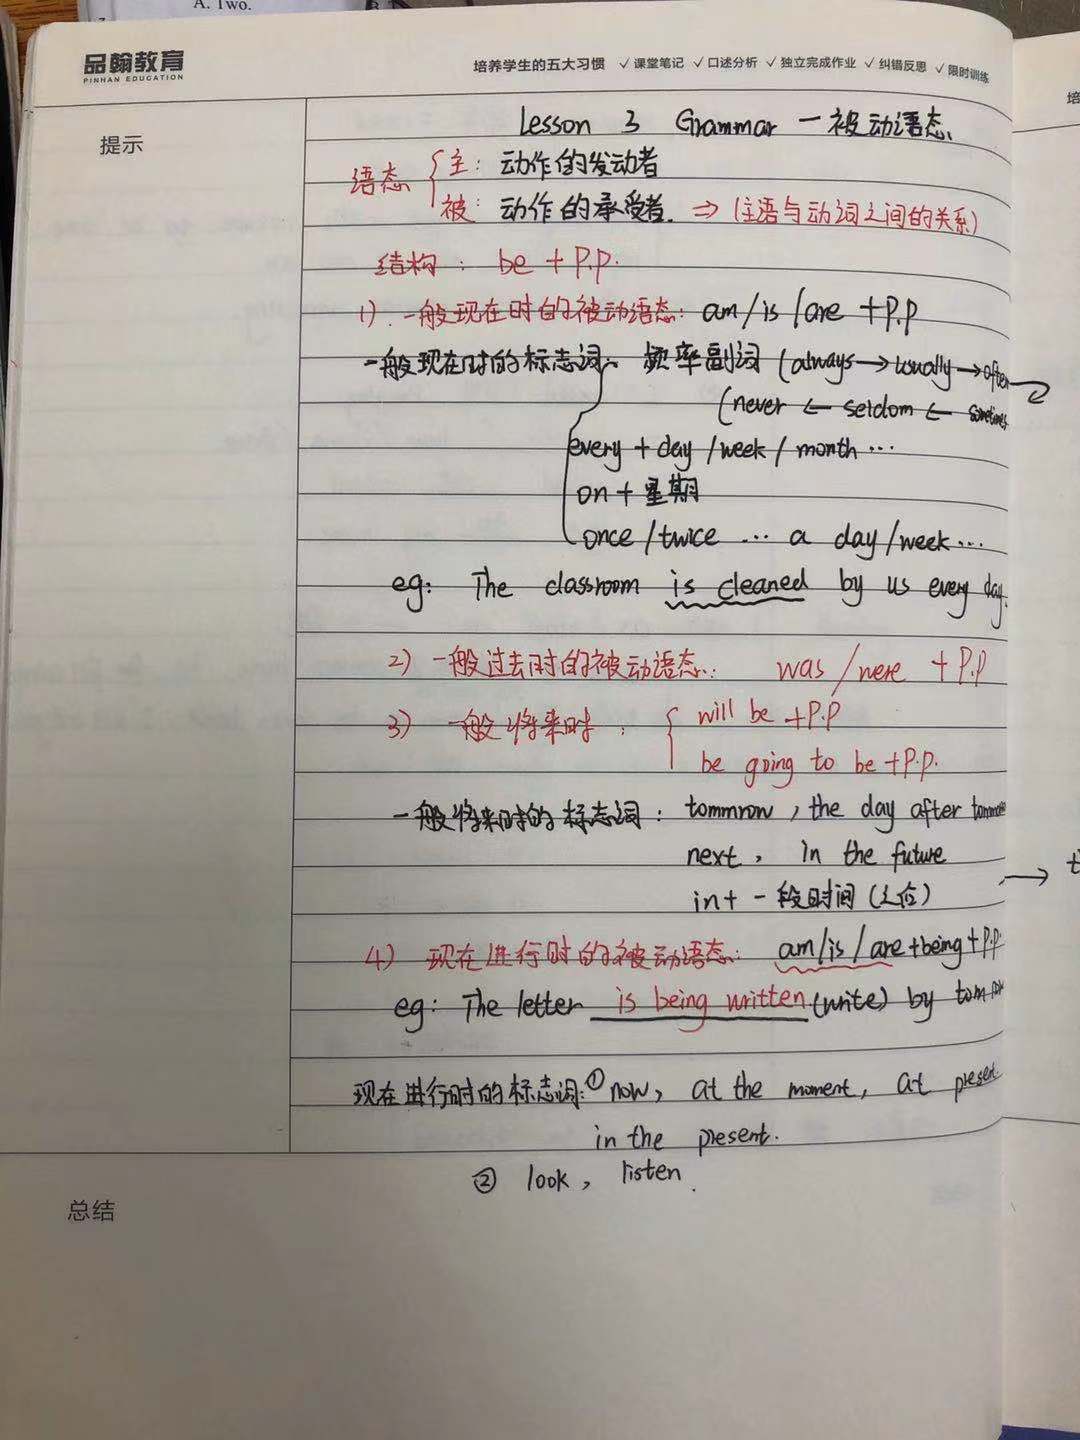 A. Two.
品翰教育
PINHAN EDUCATION
培养学生的五大习惯 ✓课堂笔记 ✓口述分析 ✓独立完成作业 ✓纠错反思 ✓限时训练
培
提示
Lesson 3 Grammar — 被动语态
语态 { 主: 动作的发动者
被: 动作的承受者. ⇒ (主语与动词之间的关系)
结构: be + P.P.
1) 一般现在时的被动语态: am/is/are + P.P
一般现在时的标志词: 频率副词 (always → usually → often
(never ← seldom ← sometimes
every + day / week / month ...
on + 星期
once / twice ... a day / week ...
eg: The classroom is cleaned by us every day.
2) 一般过去时的被动语态: was / were + P.P
3) 一般将来时: { will be + P.P
be going to be + P.P.
一般将来时的标志词: tommrow, the day after
next, in the future
in + 一段时间
4) 现在进行时的被动语态: am/is/are + being + P.P
eg: The letter is being written (write) by tom
现在进行时的标志词: ① now, at the moment, at present.
in the present.
② look, listen.
总结